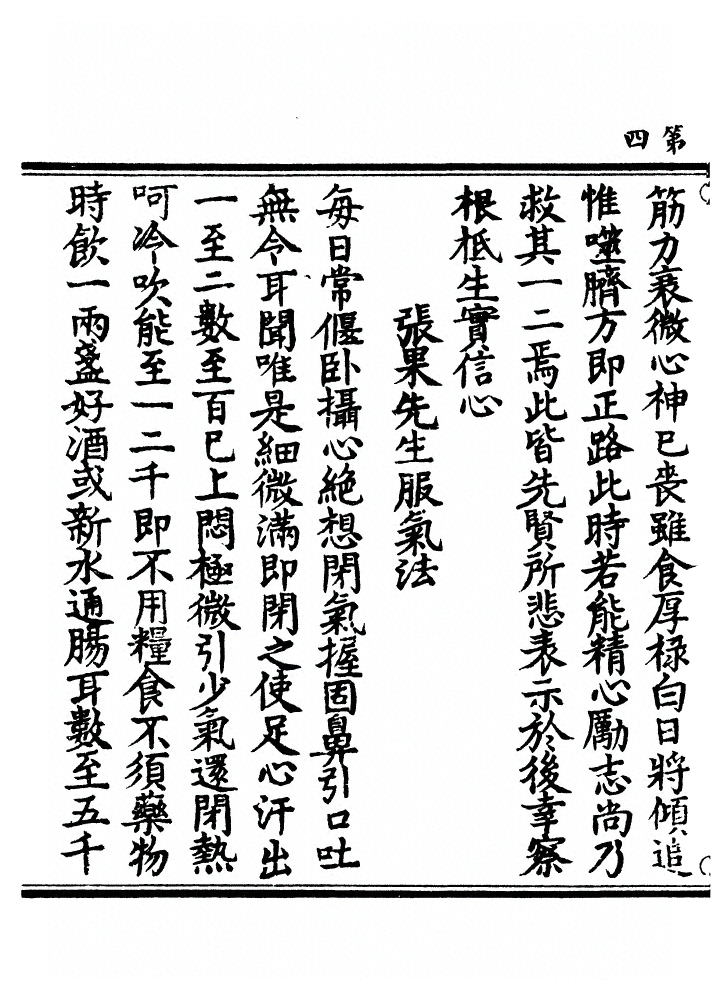 第四
筋力衰微心神已喪雖食厚祿白日將傾追
惟噬臍方即正路此時若能精心勵志尚乃
救其一二焉此皆先賢所悲表示於後幸察
根柢生實信心
張果先生服氣法
每日常偃卧攝心絶想閉氣握固鼻引口吐
無令耳聞唯是細微滿即閉之使足心汗出
一至二數至百已上悶極微引少氣還閉熱
呵冷吹能至一二千即不用糧食不須藥物
時飲一兩盞好酒或新水通腸耳數至五千